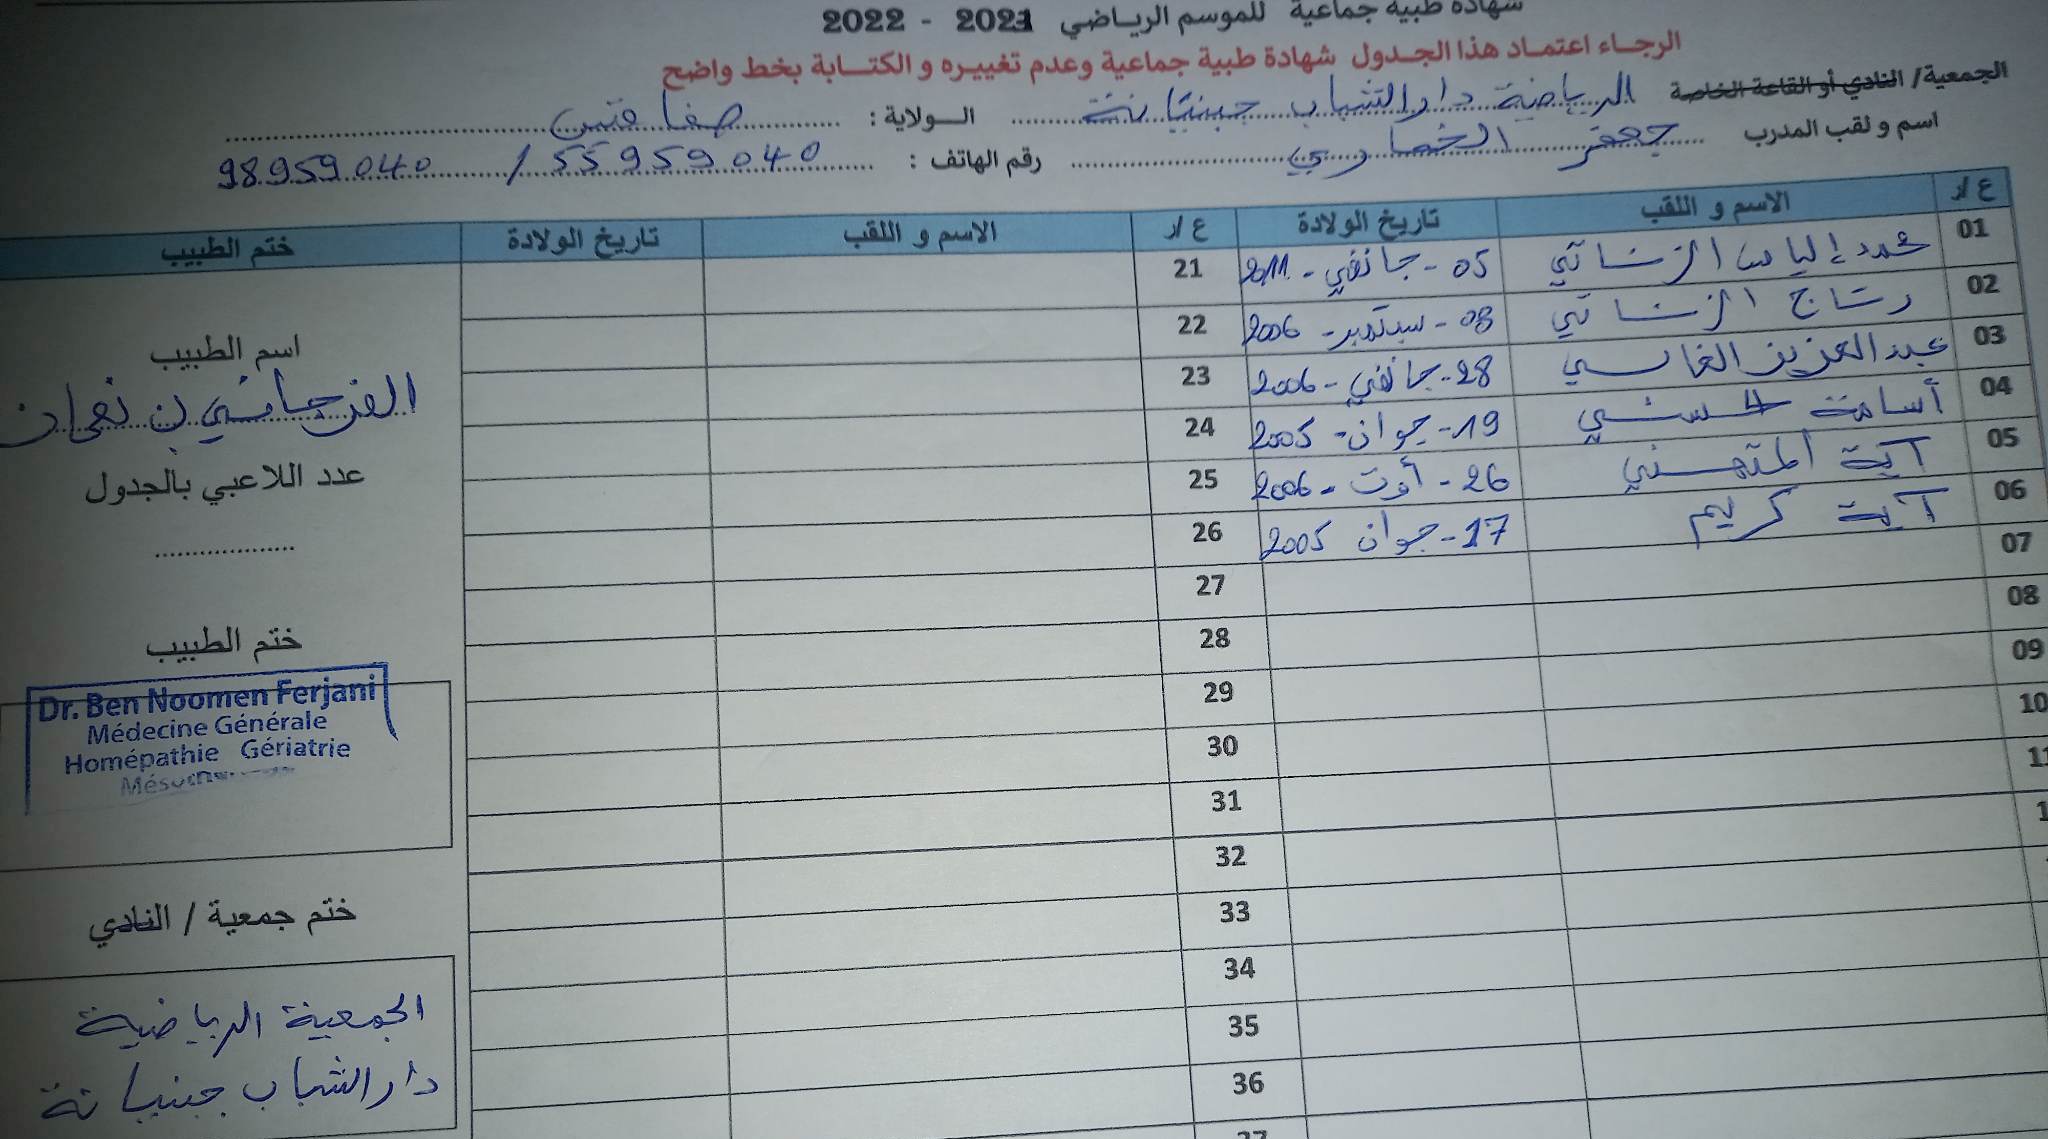 شهادة طبية جماعية للموسم الرياضي 2021 - 2022
الرجاء اعتماد هذا الجدول شهادة طبية جماعية وعدم تغييره و الكتابة بخط واضح
الجمعية/ النادي أو القاعة الخاصة الرياضية دار الشباب جبنيانة الولاية : صفاقس
اسم و لقب المدرب جعفر رقم الهاتف : 55959040 / 98959040
ع/ر الاسم و اللقب تاريخ الولادة ع/ر الاسم و اللقب تاريخ الولادة ختم الطبيب
01 محمد إلياس الزناتي 05 - جانفي - 2011 21
02 رتاج الزناتي 08 - سبتمبر - 2006 22
03 عبد العزيز الغابسي 28 - جانفي - 2006 23
04 أسامة الحسني 19 - جوان - 2005 24
05 آية المتهني 26 - أوت - 2006 25
06 آية كريم 17 - جوان 2005 26
07 27
08 28
09 29
10 30
11 31
32
33
34
35
36
37
اسم الطبيب
الفرجاني بن نعمان
عدد اللاعبي بالجدول
ختم الطبيب
Dr. Ben Noomen Ferjani
Médecine Générale
Homépathie Gériatrie
ختم جمعية / النادي
الجمعية الرياضية
دار الشباب جبنيانة